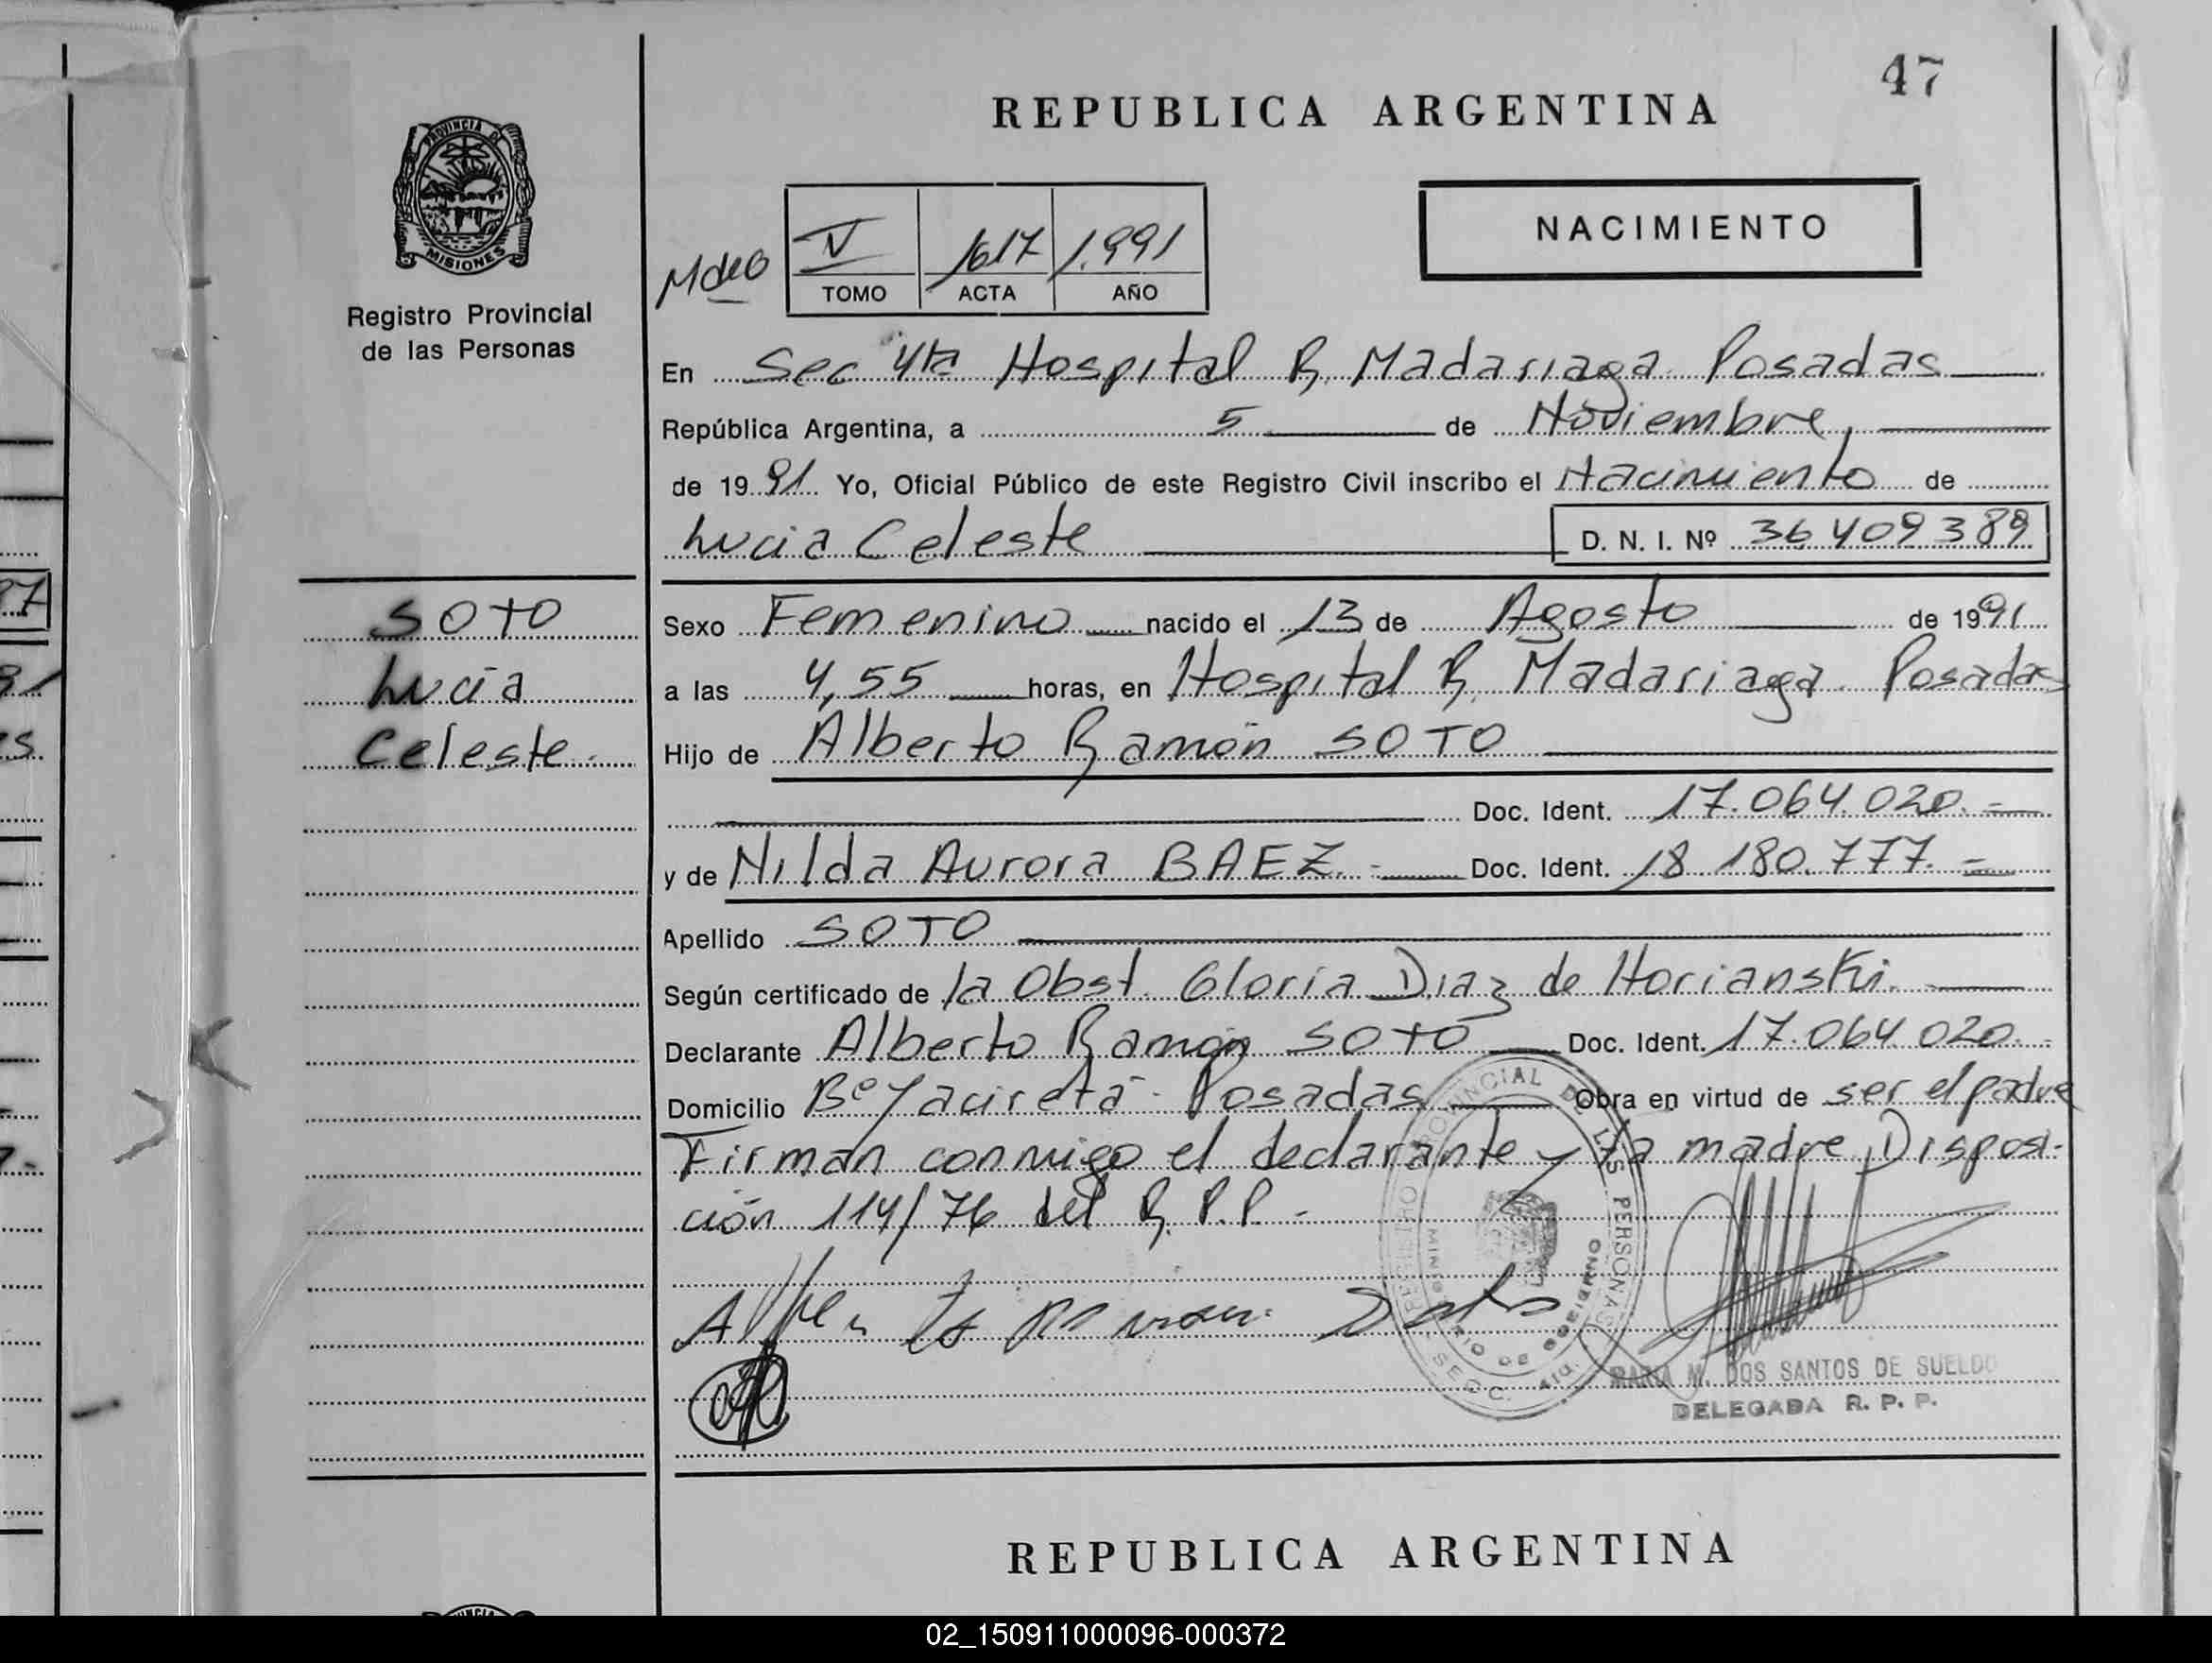 47
REPUBLICA ARGENTINA
PROVINCIA DE
MISIONES
Registro Provincial
de las Personas
NACIMIENTO
V 1617 1.991
TOMO ACTA AÑO
En Sec 4ta Hospital R. Madariaga Posadas
República Argentina, a 5 de Noviembre,
de 1991 Yo, Oficial Público de este Registro Civil inscribo el Nacimiento de
Lucia Celeste D. N. I. Nº 36409389
SOTO
Lucia
Celeste.
Sexo Femenino nacido el 13 de Agosto de 1991
a las 4,55 horas, en Hospital R. Madariaga Posadas
Hijo de Alberto Ramón SOTO
Doc. Ident. 17.064.020.=
y de Nilda Aurora BAEZ.= Doc. Ident. 18.180.777.=
Apellido SOTO
Según certificado de la Obst. Gloria Diaz de Horianski.
Declarante Alberto Ramón SOTO Doc. Ident. 17.064.020.
Domicilio Bº Yaciretá - Posadas Obra en virtud de ser el padre
Firman conmigo el declarante y la madre, Disposi-
ción 114/76 del R.P.P.-
REGISTRO PROVINCIAL DE LAS PERSONAS
MINISTERIO DE GOBIERNO
SECC. 4ta.
MARIA M. DOS SANTOS DE SUELDO
DELEGADA R. P. P.
REPUBLICA ARGENTINA
02_150911000096-000372